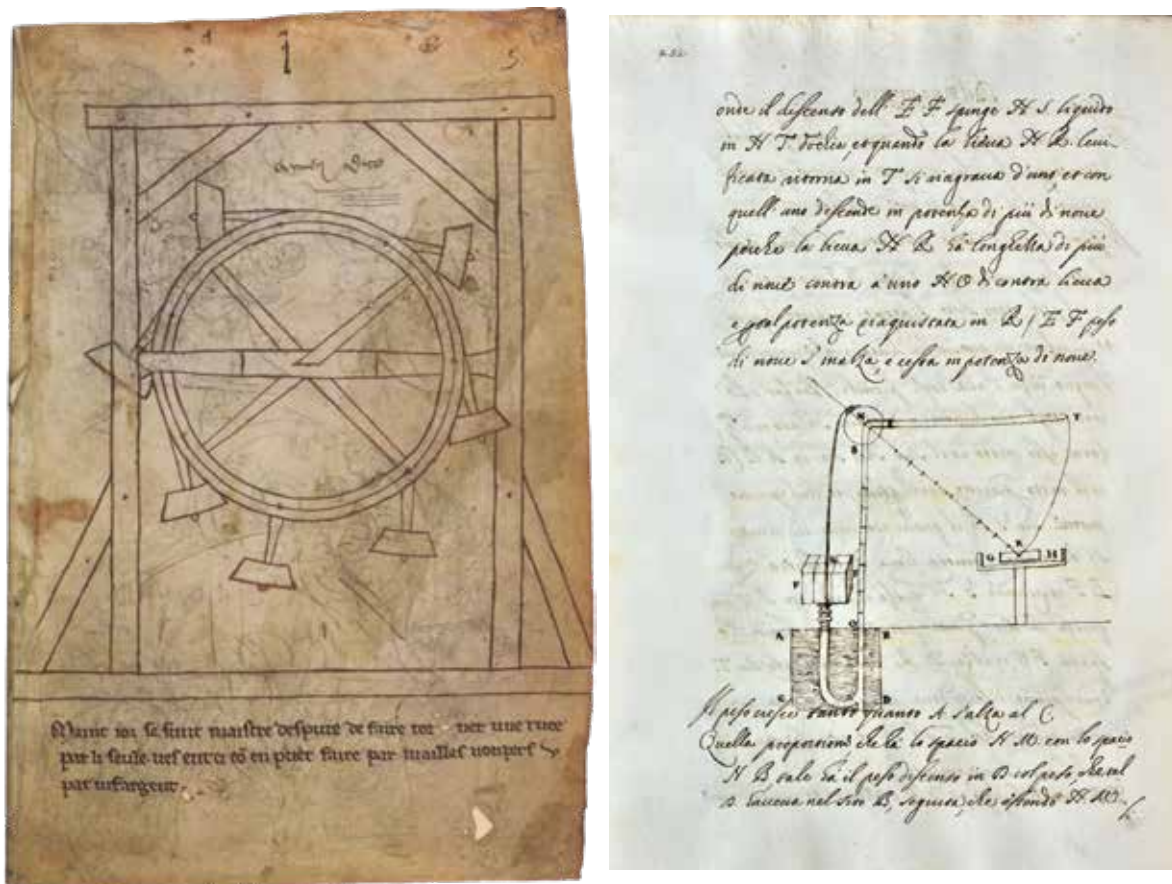 5
Maint ior se sunt maistre despute de faire tor ner une ruee
par li seule ves ent ci cō en puet faire par mailles nonpers
par vifargent.
252
onde il descenso dell' E F spinge N S liquido
in N T et quando la lieua N R leui-
ficata ritorna in T si riagraua d'uno, et con
quell' uno descende in potenza di più di noue
perche la lieua N R hà longhezza di più
di noue contra à uno N O di contra lieua
potenza riaquistata in R / E F peso
di noue s'inalza, e cessa in potenza di noue.
N
T
S
R
G H
F
A B
C D
Il peso cresce tanto quanto A s'alza al C
Quella proporzione che hà lo spazio N M con lo spazio
N B tale hà il peso disceso in D col peso, che
nel sito B, seguita, che essendo N M